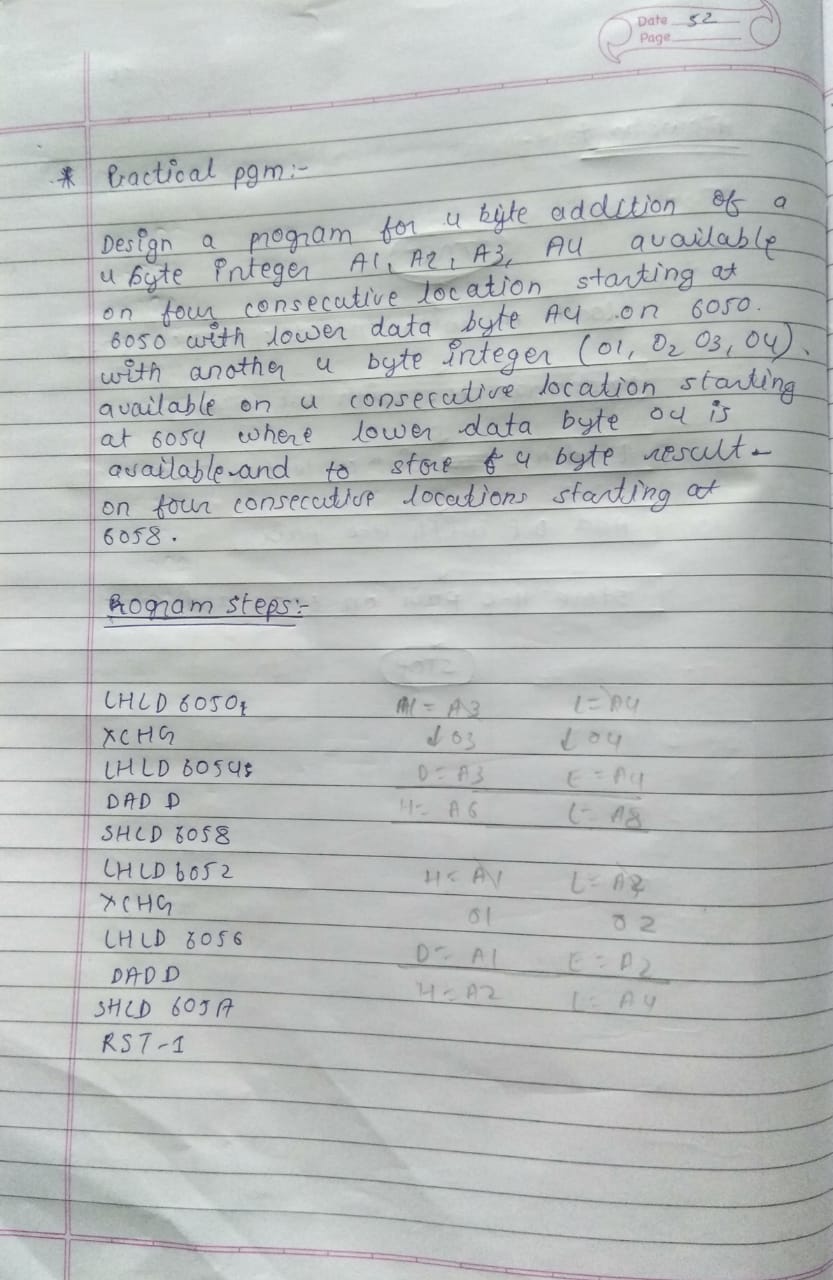 Date 52
Page
* Practical pgm:-
Design a program for 4 byte addition of a
4 byte integer A1, A2, A3, A4 available
on four consecutive location starting at
6050 with lower data byte A4 on 6050.
with another 4 byte integer (01, 02 03, 04).
available on 4 consecutive location starting
at 6054 where lower data byte 04 is
available and to store 4 byte result
on four consecutive locations starting at
6058.
Program steps:-
LHLD 6050 = A3 L = A4
XCHG ↓ 03 ↓ 04
LHLD 6054 D = A3 E = A4
DAD D H = A6 L = A8
SHLD 6058
LHLD 6052 H = A1 L = A2
XCHG 01 02
LHLD 6056 D = A1 E = A2
DAD D H = A2 L = A4
SHLD 605A
RST-1